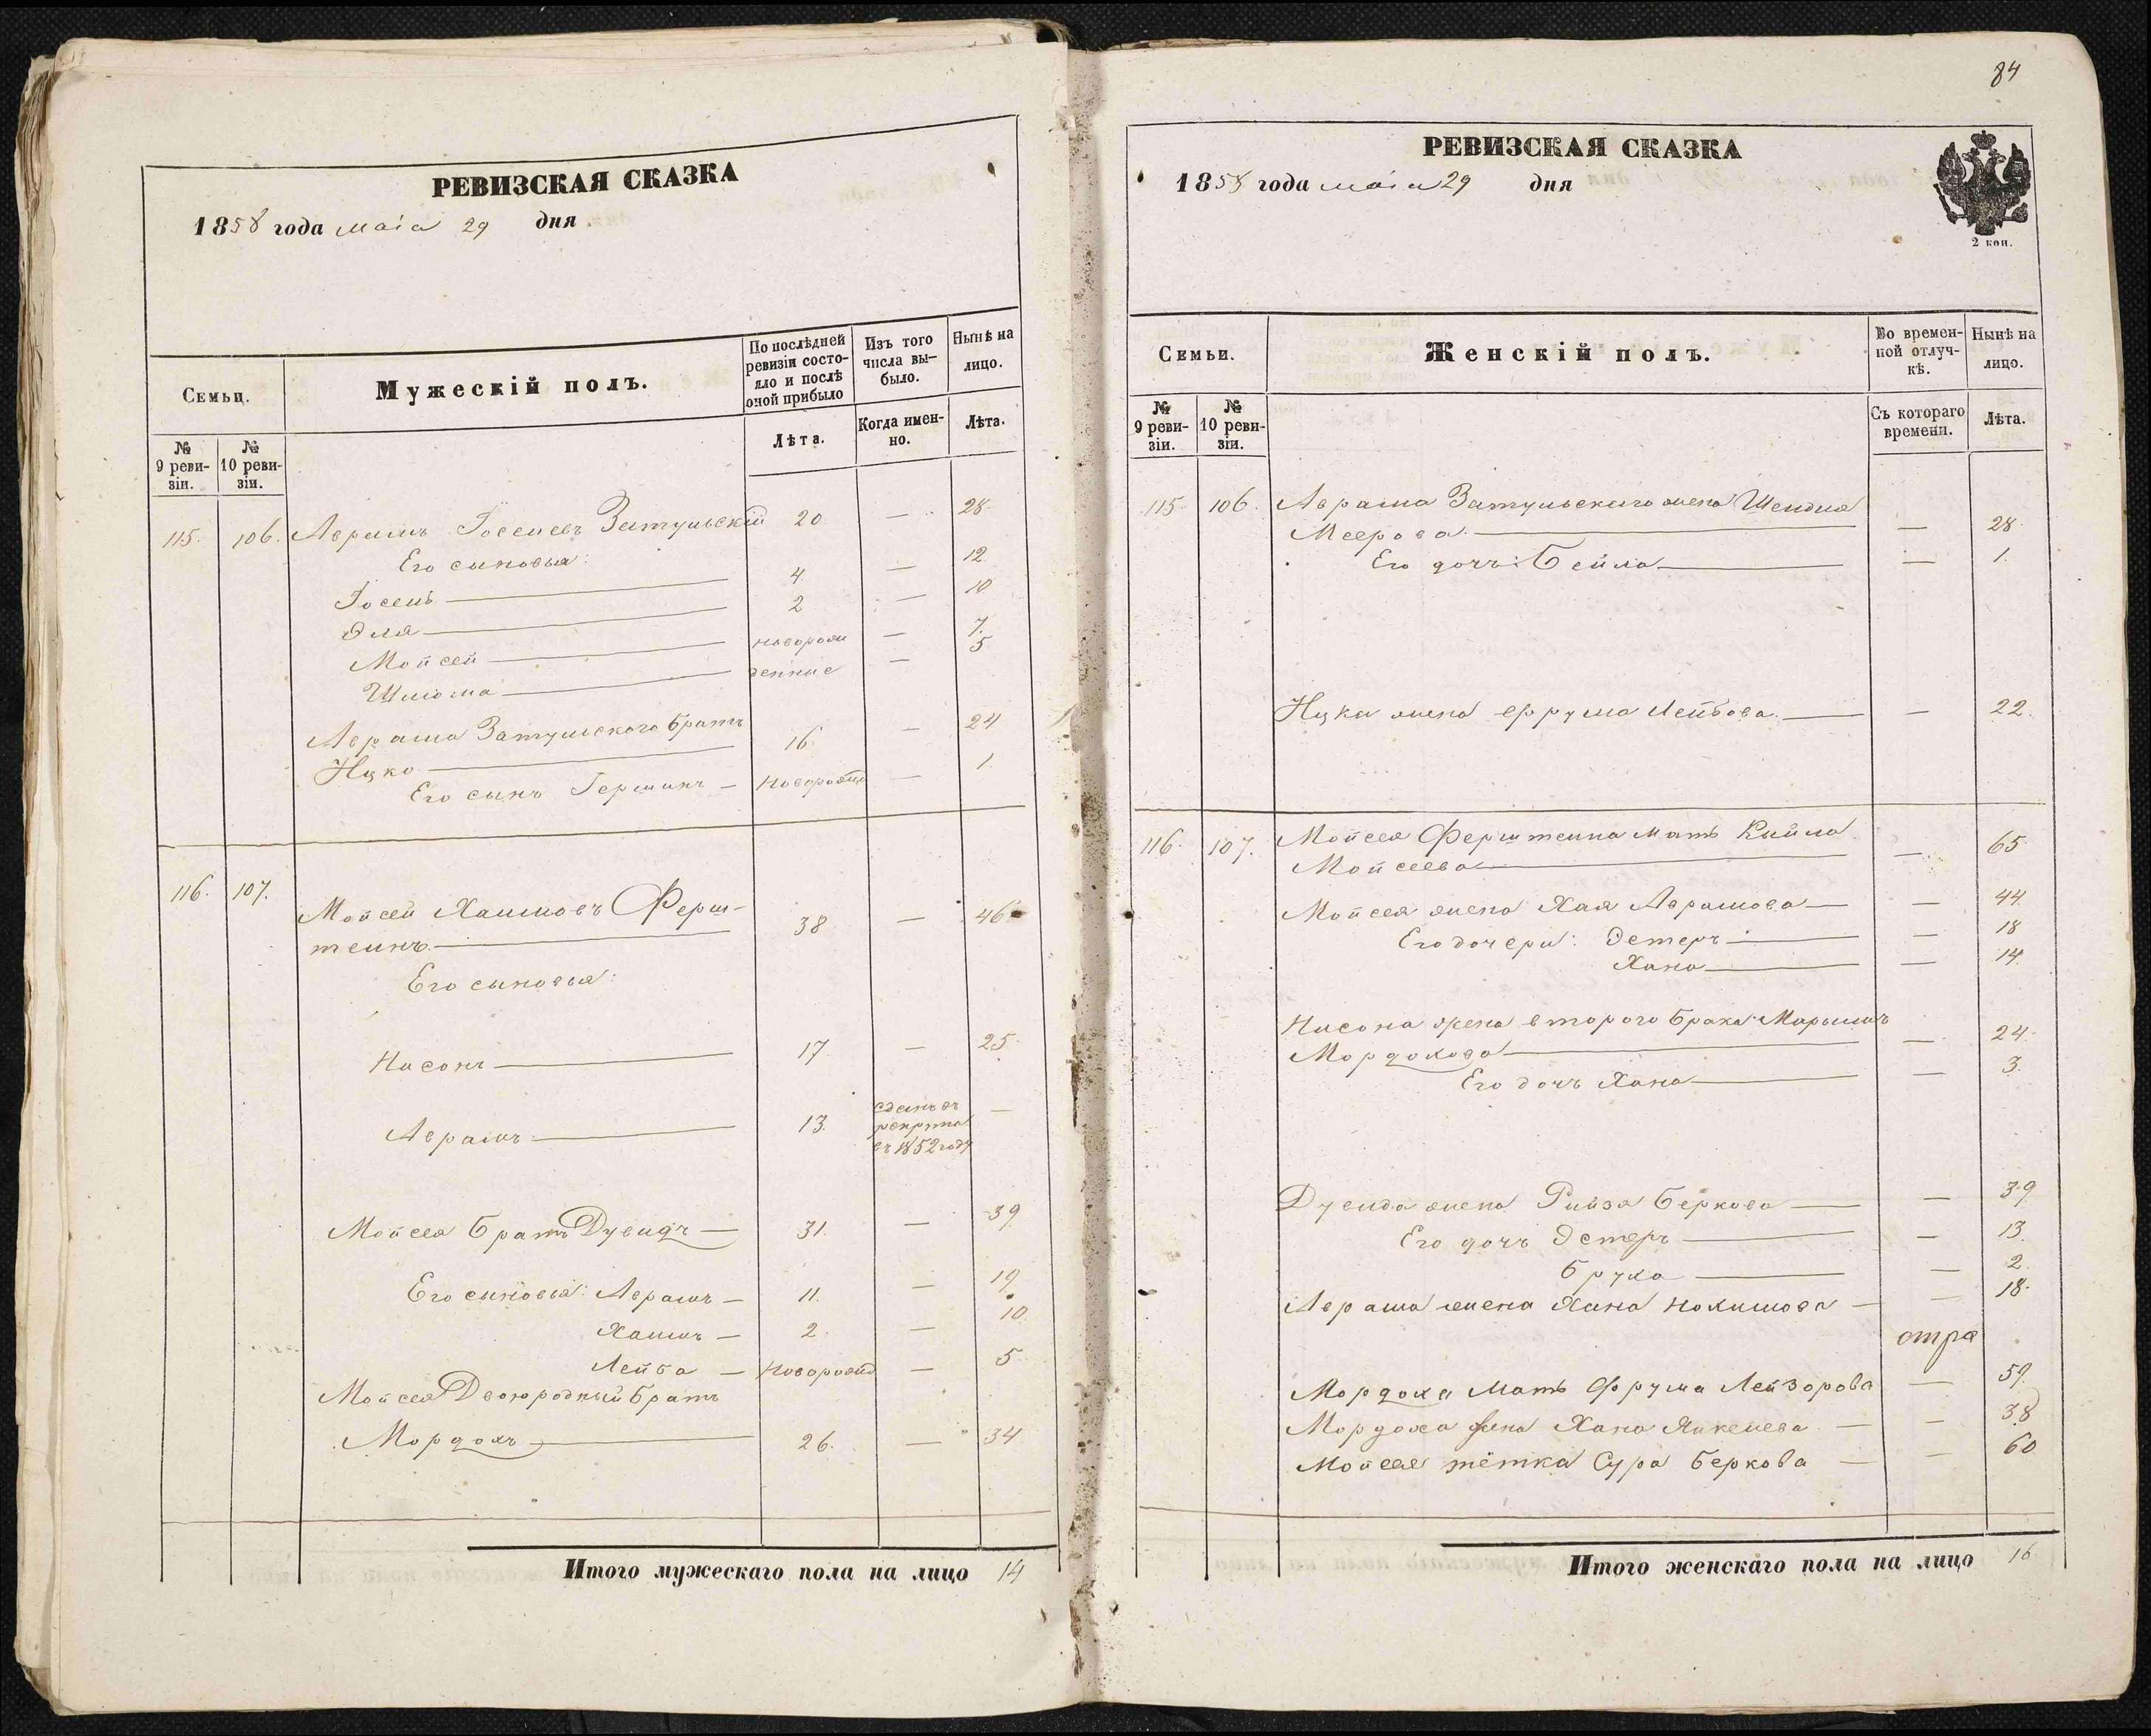 РЕВИЗСКАЯ СКАЗКА
1858 года маія 29 дня
Семьи.
Мужескій полъ.
По послѣдней ревизіи состояло и послѣ оной прибыло
Изъ того числа вы-было.
Нынѣ на лицо.
№ 9 реви-зіи.
№ 10 реви-зіи.
Лѣта.
Когда имен-но.
Лѣта.
115. 106. Аврамъ Іосевъ Затульскій 20 — 28
Его сыновья:
Іосевъ — 4 — 12
Эля — 2 — 10
Мойсей — новорож — 7.
Шлома — денные — 5
Аврама Затульского братъ
Ицко — 16 — 24
Его сынъ Гершинъ — новорожд — 1
116. 107. Мойсей Хаимовъ Ферш-
теинъ — 38 — 46
Его сыновья:
Нисонъ — 17 — 25
Аврамъ — 13. сданъ въ рекруты въ 1852 году —
Мойсея братъ Дувидъ — 31. — 39
Его сыновья: Аврамъ — 11. — 19
Хаимъ — 2. — 10
Лейба — новорожд — 5
Мойсея Двоюродный братъ
Мордохъ — 26. — 34
Итого мужескаго пола на лицо 14
84
РЕВИЗСКАЯ СКАЗКА
1858 года маіа 29 дня
2 коп.
Семьи.
Женскій полъ.
Во времен-ной отлуч-кѣ.
Нынѣ на лицо.
№ 9 реви-зіи.
№ 10 реви-зіи.
Съ котораго времени.
Лѣта.
115. 106. Аврама Затульскаго жена Шендля
Меерова — — 28
Его дочь: Бейла — — 1.
Ицка жена Фрума Лейбова — — 22.
116. 107. Мойсея Ферштеина мать Кыйла
Мойсеева — — 65
Мойсея жена Хая Аврамова — — 44
Его дочери: Эстеръ — — 18
Хана — — 14
Нисона жена второго брака Марьимъ
Мордохова — — 24
Его дочь Хана — — 3.
Дувида жена Рийзя Беркова — — 39
Его дочь Эстеръ — — 13.
Бруха — — 2.
Аврама жена Хана Нохимова — — 18.
отра
Мордоха мать Фрума Лейзорова — 59.
Мордоха жена Хана Янкелева — — 38
Мойсея тётка Сура Беркова — — 60
Итого женскаго пола на лицо 16